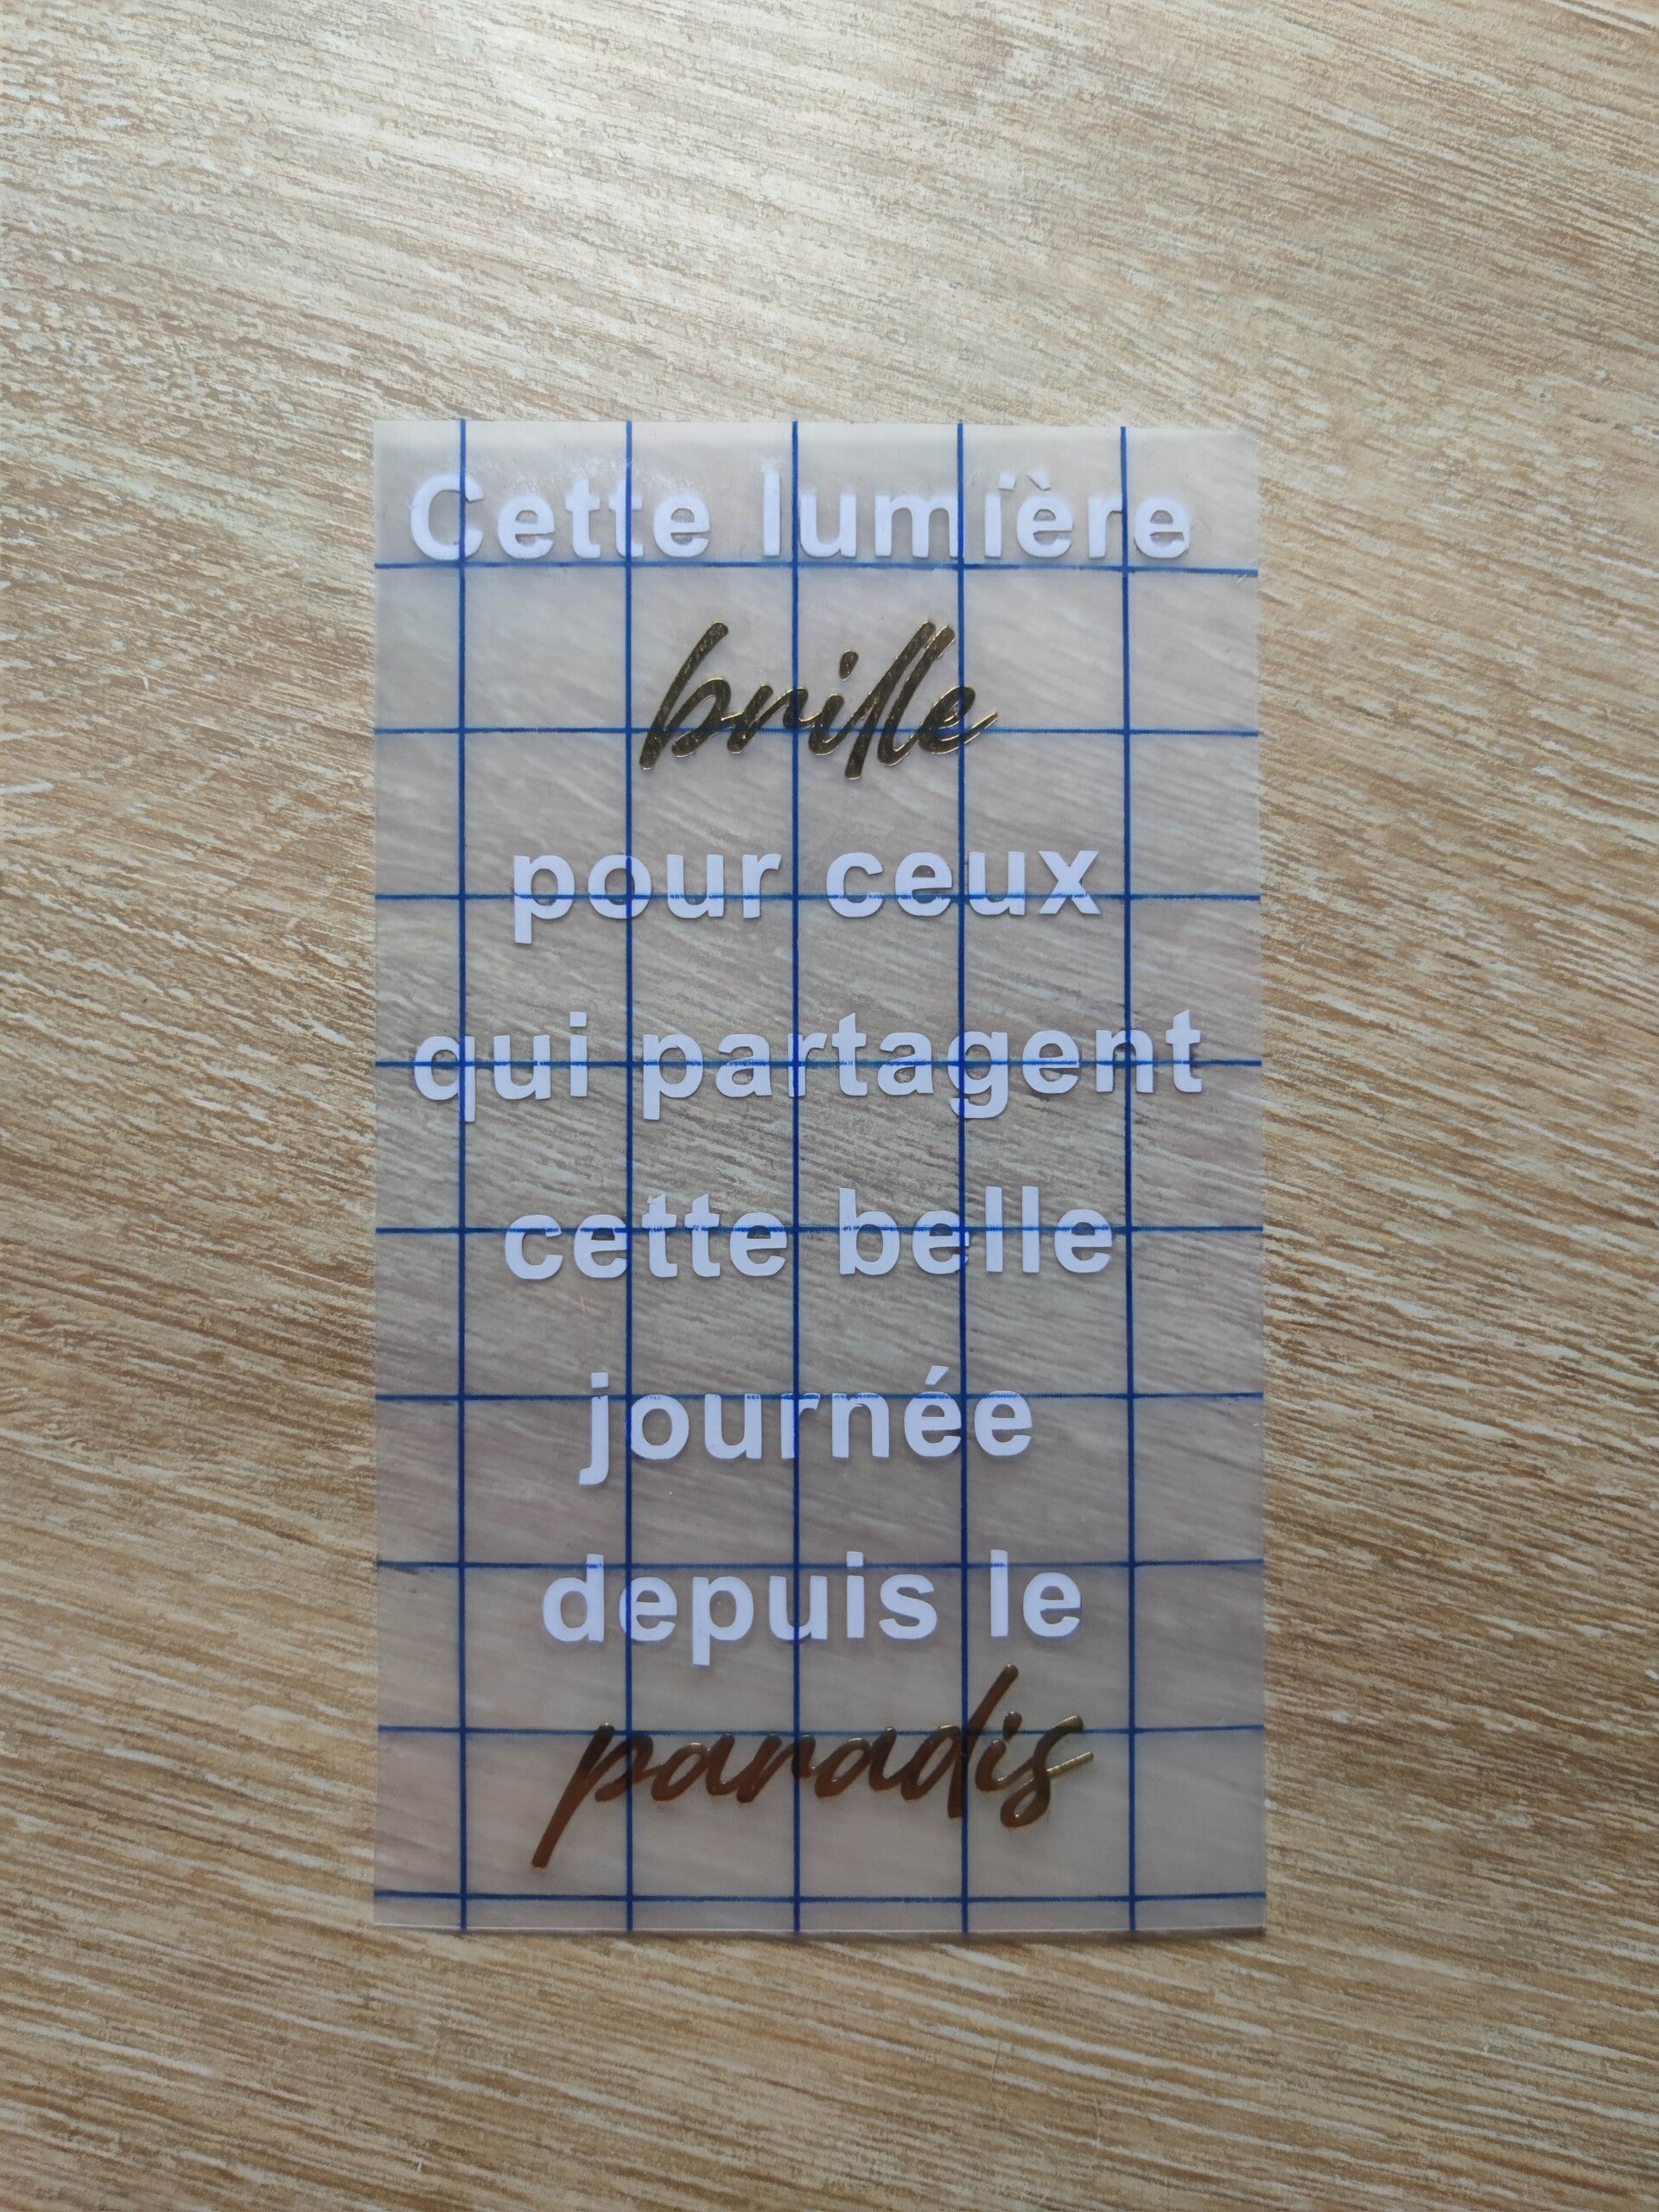 Cette lumière
brille
pour ceux
qui partagent
cette belle
journée
depuis le
paradis